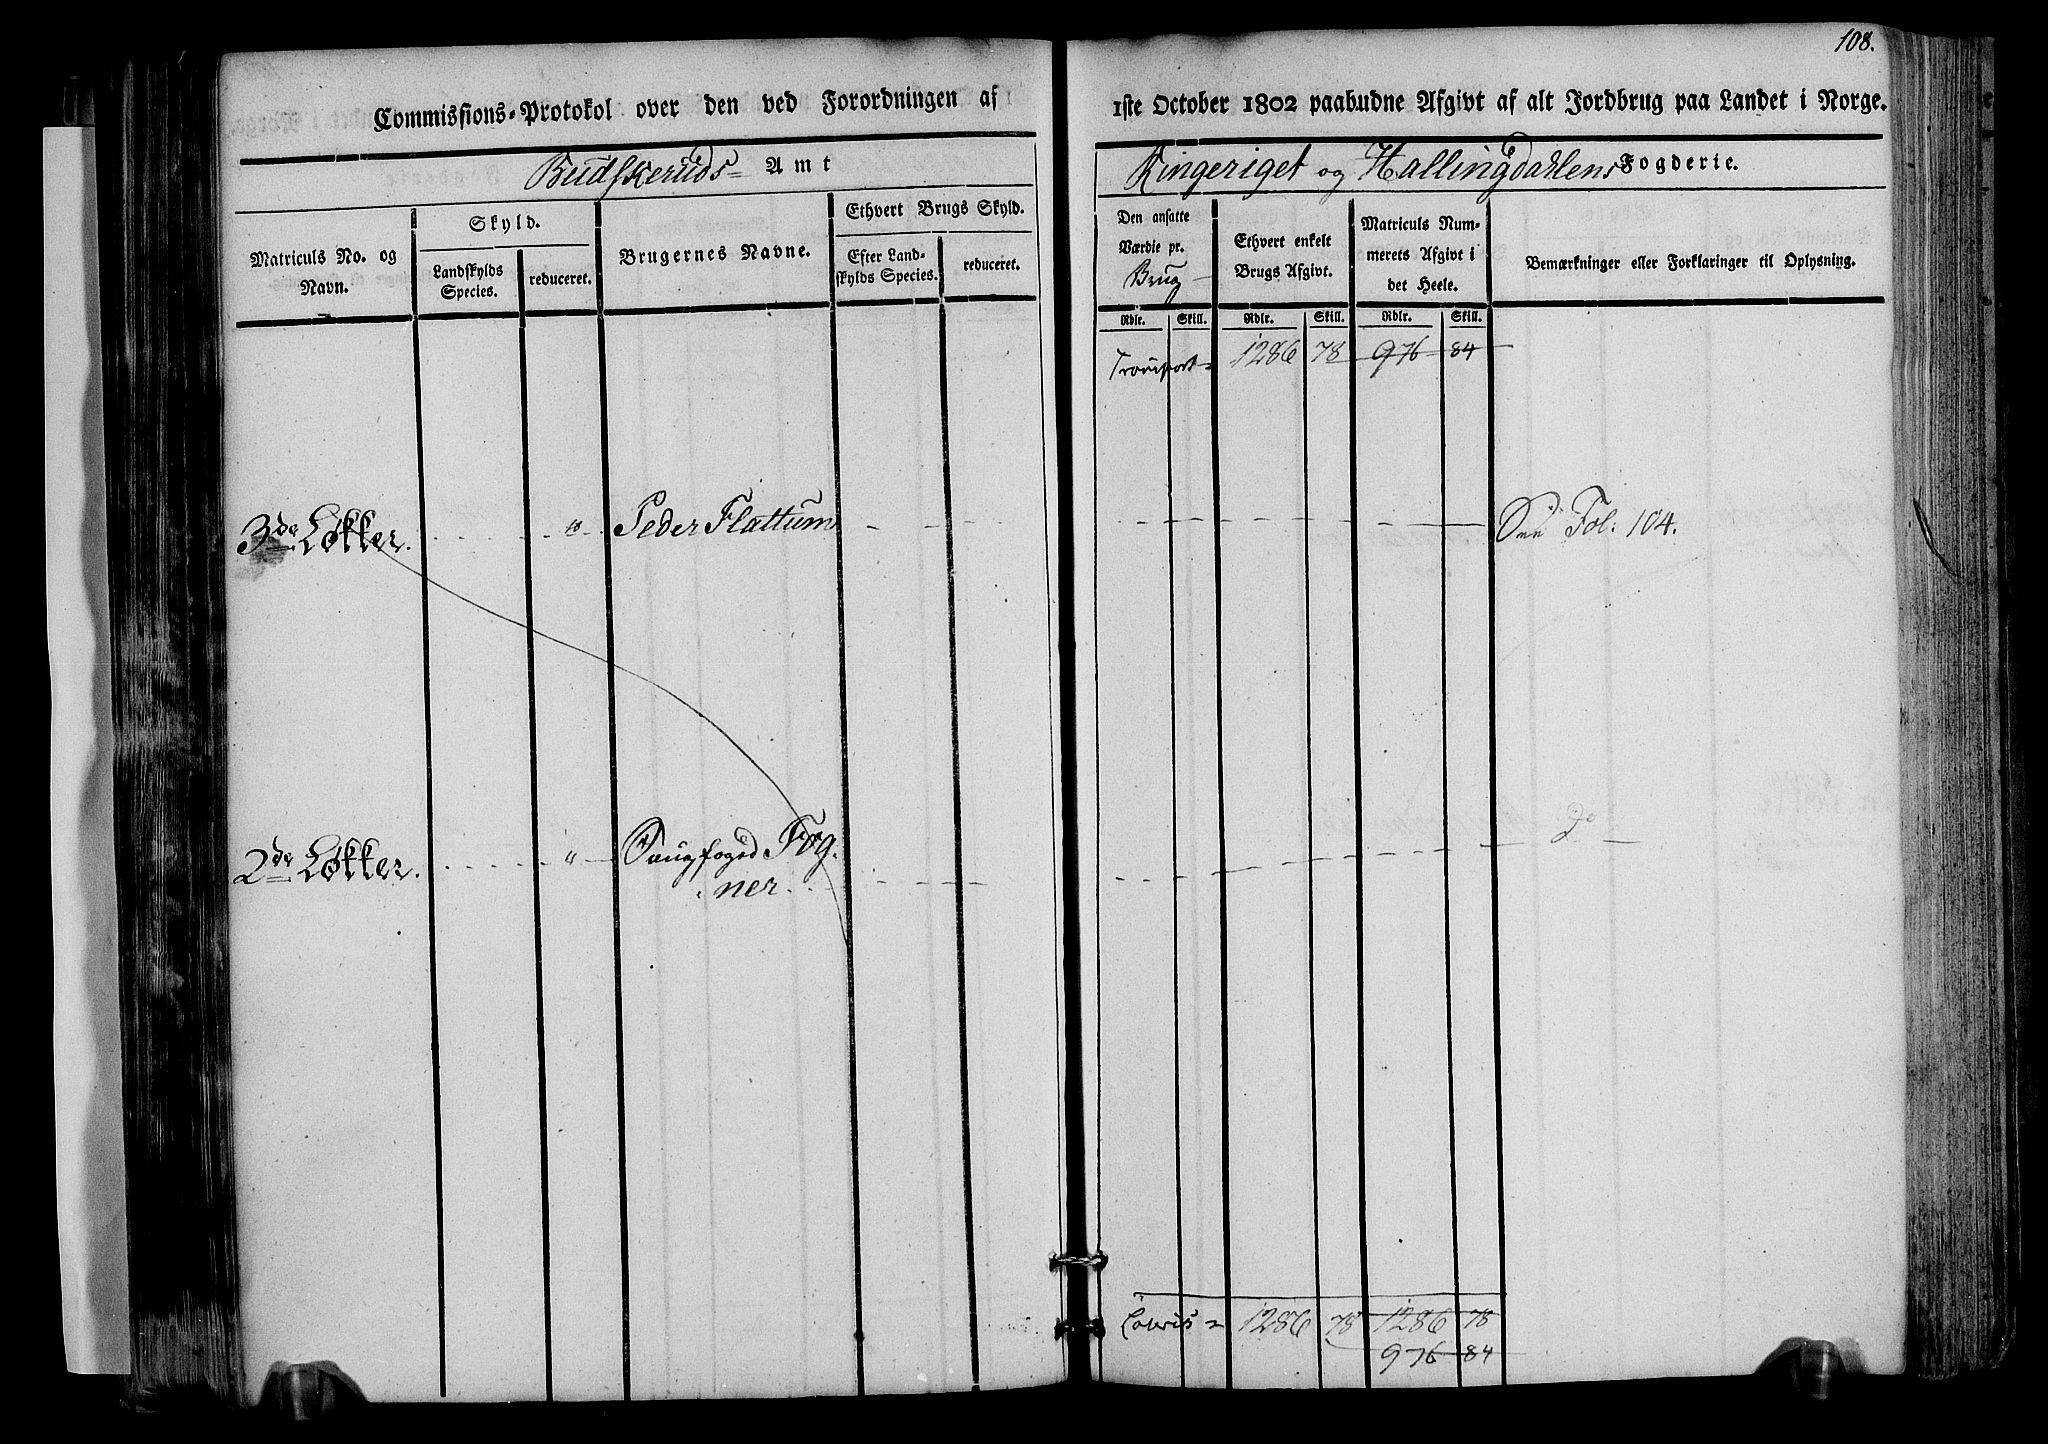 108.
Commissions-Protokol over den ved Forordningen af 1ste October 1802 paabudne Afgivt af alt Jordbrug paa Landet i Norge.
Budskeruds Amt
Ringeriget og Hallingdahlens Fogderie.
Matriculs No. og Navn.
Skyld.
Landskylds Species.
reduceret.
Brugernes Navne.
Ethvert Brugs Skyld.
Efter Landskylds Species.
reduceret.
Den ansatte Værdie pr. Brug
Ethvert enkelt Brugs Afgivt.
Matriculs Nummerets Afgivt i det Heele.
Bemærkninger eller Forklaringer til Oplysning.
Rdlr. Skill. Rdlr. Skill. Rdlr. Skill.
Transport 1286 78 976 84
3de Løkker. " Peder Flattum See Fol: 104.
2de Løkker. " Fog-
ner do
Lateris 1286 78 1286 78
976 84